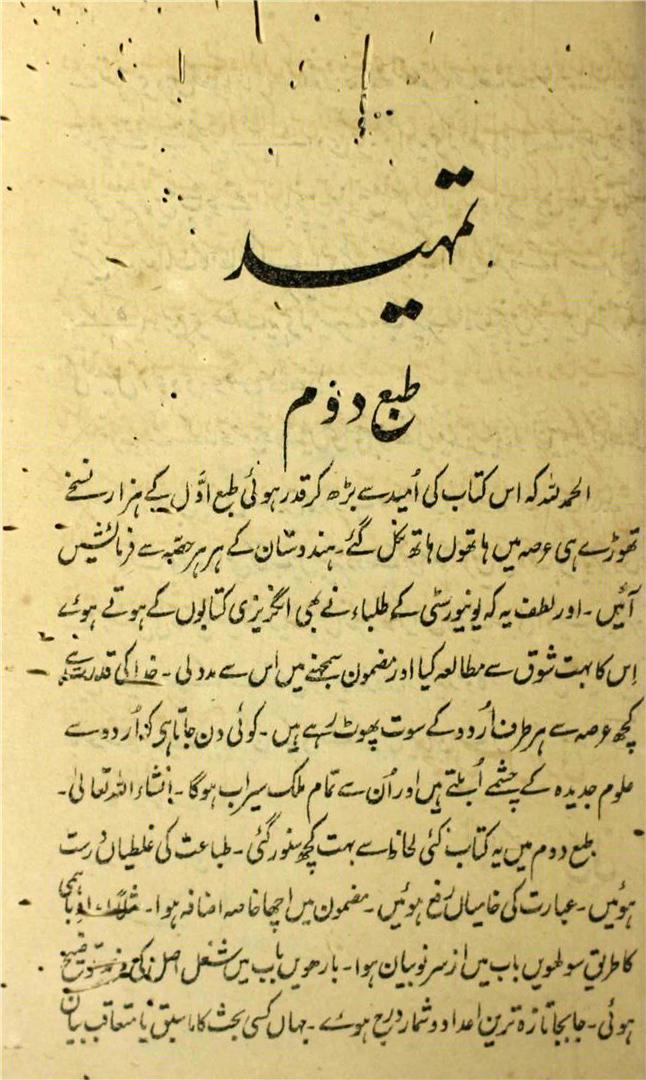 تمہید
طبع دوم
الحمد للہ کہ اس کتاب کی اُمید سے بڑھ کر قدر ہوئی طبع اوّل کے ہزار نسخے
تھوڑے ہی عرصہ میں ہاتھوں ہاتھ نکل گئے۔ ہندوستان کے ہر ہر حصّہ سے فرمائشیں
آئیں۔ اور لطف یہ کہ یونیورسٹی کے طلباء نے بھی انگریزی کتابوں کے ہوتے ہوئے
اِس کا بہت شوق سے مطالعہ کیا اور مضمون سمجھنے میں اس سے مدد لی۔ خدا کی قدرت ہے
کچھ عرصہ سے ہر طرف اُردو کے سوت پھوٹ رہے ہیں۔ کوئی دن جاتا ہی کہ اُردو سے
علوم جدیدہ کے چشمے اُبلتے ہیں اور اُن سے تمام ملک سیراب ہوگا۔ انشاء اللہ تعالیٰ۔
طبع دوم میں یہ کتاب کئی لحاظ سے بہت کچھ سنور گئی۔ طباعت کی غلطیاں درست
ہوئیں۔ عبارت کی خامیاں رفع ہوئیں۔ مضمون میں اچھا خاصہ اضافہ ہوا۔ مثلاً امداد باہمی
کا طریق سولھویں باب میں از سر نو بیان ہوا۔ بارھویں باب میں شغل اصل کی مزید توضیح
ہوئی۔ جابجا تازہ ترین اعداد و شمار درج ہوئے۔ جہاں کسی بحث کا ماسبق یا متعاقب بیان